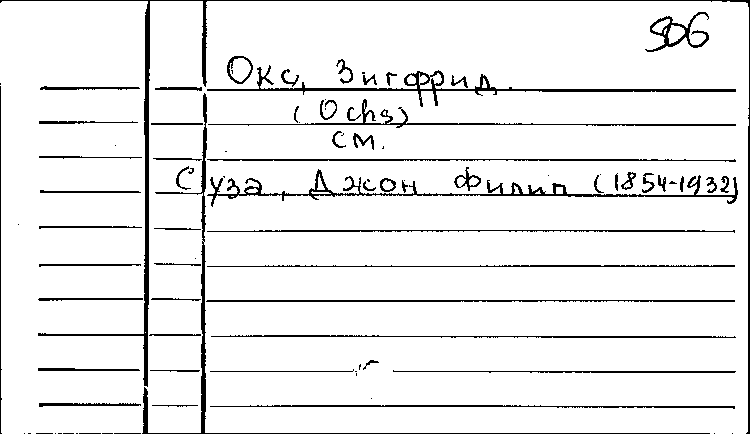 506
Окс, Зигфрид.
(Ochs)
см.
Суза, Джон Филип (1854-1932)